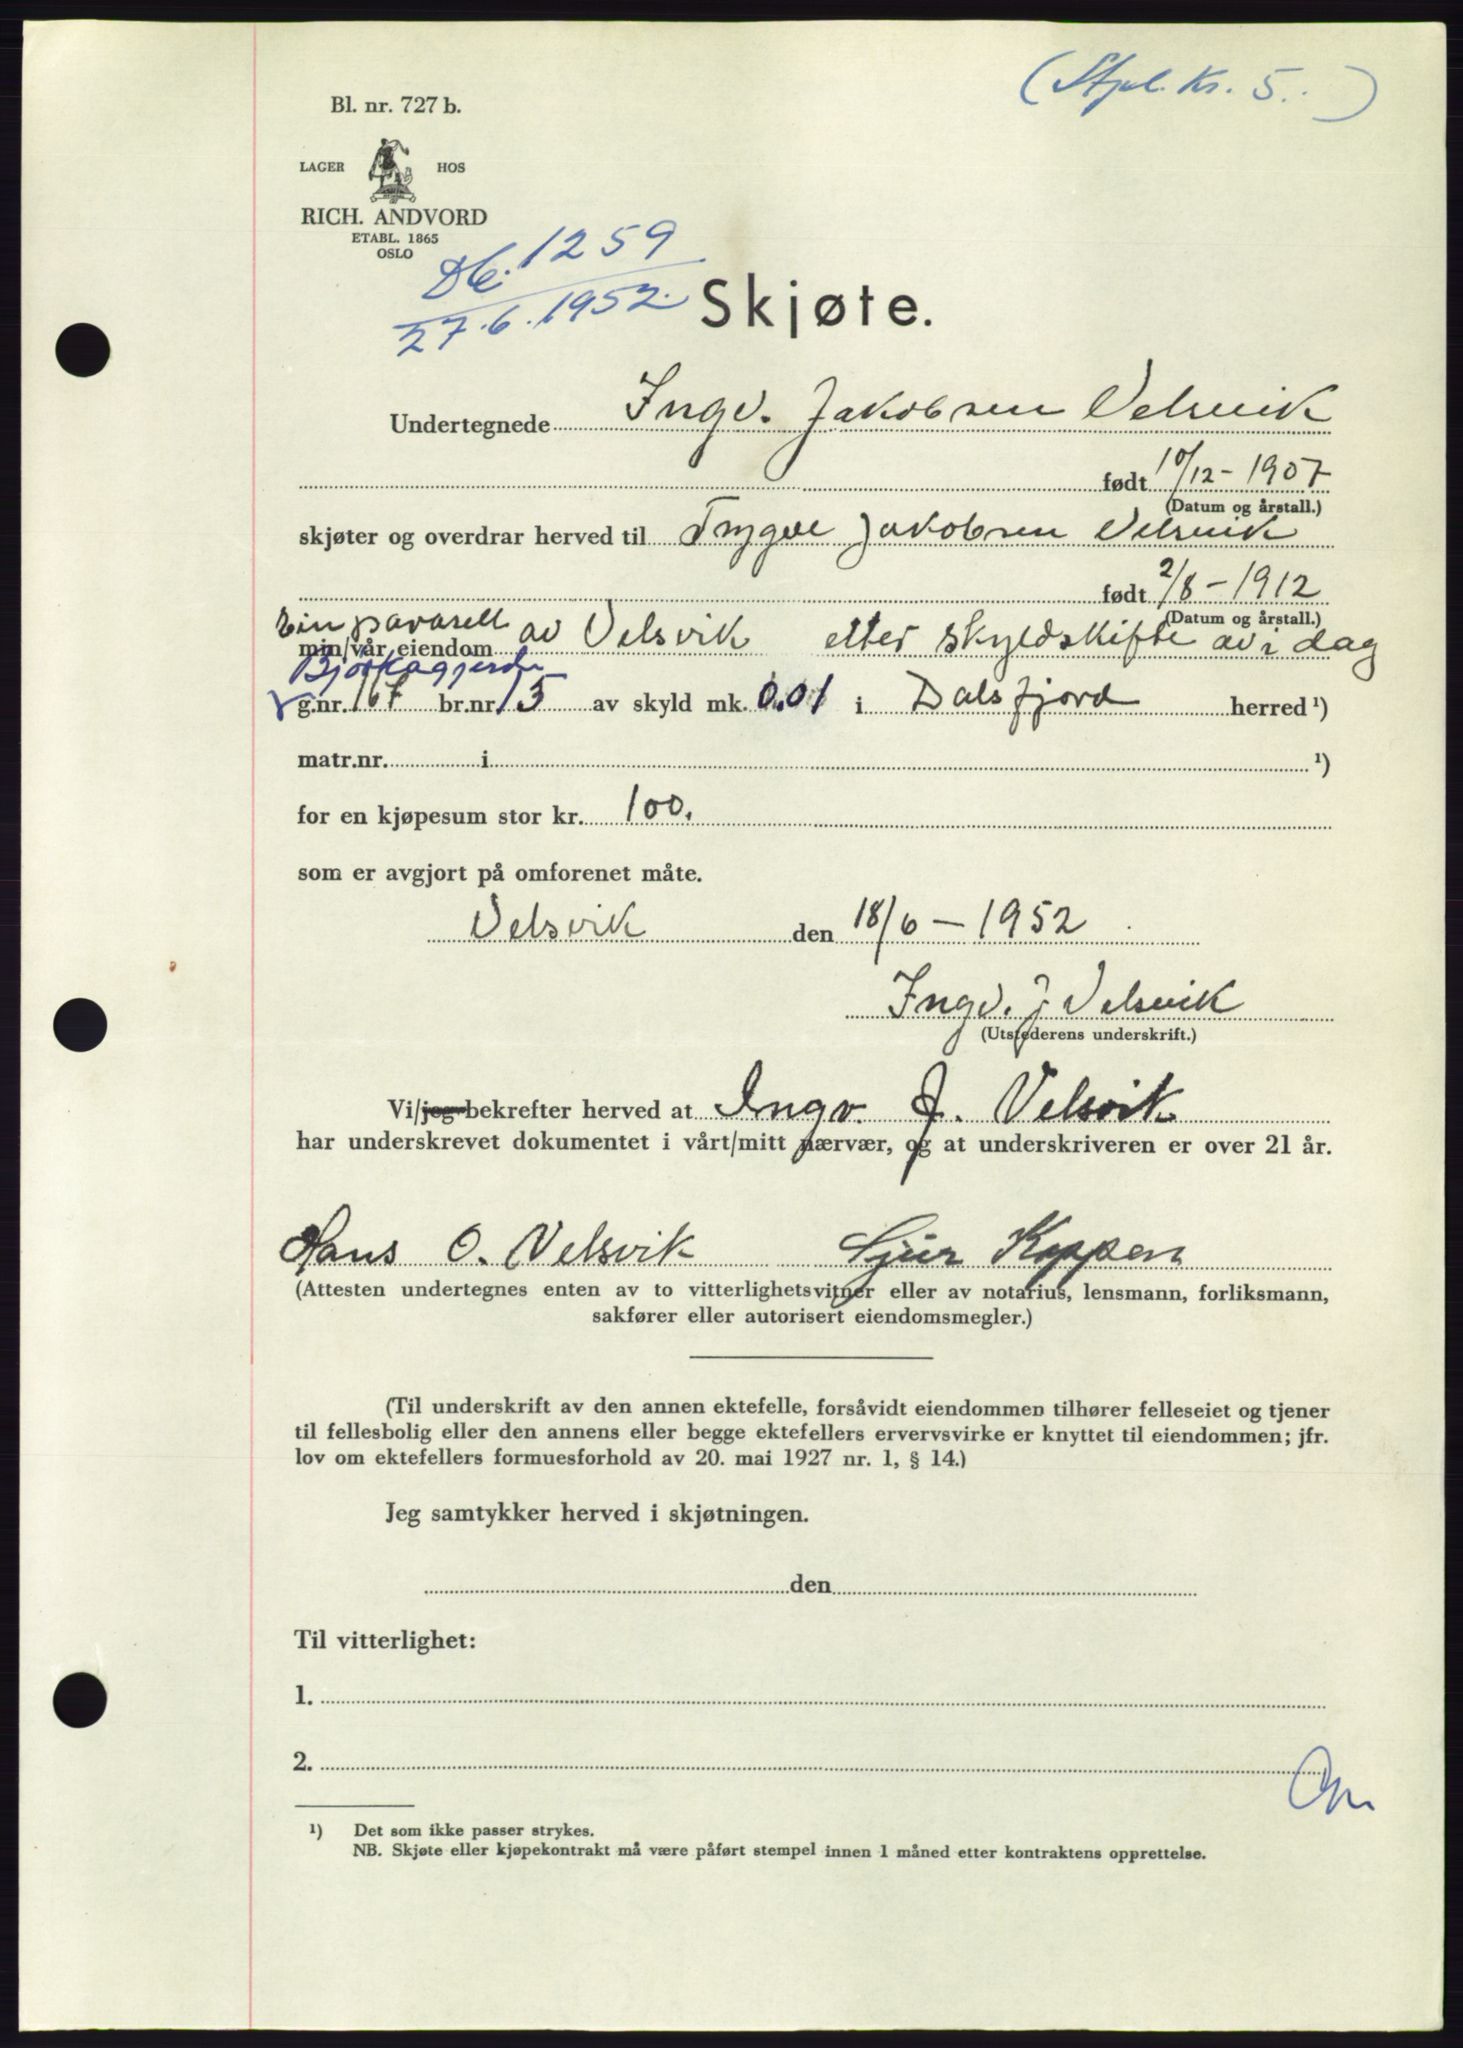 (Stpl. Kr. 5.-)
Bl. nr. 727 b.
LAGER HOS
RICH. ANDVORD
ETABL. 1865
OSLO
Db. 1259
27.6.1952.
Skjøte.
Undertegnede Ingv. Jakobsen Velsvik
født 10/12-1907
(Datum og årstall.)
skjøter og overdrar herved til Trygve Jakobsen Velsvik
født 2/8-1912
(Datum og årstall.)
ein parasell
min/vår eiendom av Velsvik etter skyldskifte av i dag
g.nr. 167 br.nr. 15 av skyld mk. 0.01 i Dalsfjord herred ¹)
matr.nr. i ¹)
for en kjøpesum stor kr. 100.
som er avgjort på omforenet måte.
Velsvik den 18/6-1952
Ingv. J Velsvik
(Utstederens underskrift.)
Vi/jeg bekrefter herved at Ingv. J. Velsvik
har underskrevet dokumentet i vårt/mitt nærvær, og at underskriveren er over 21 år.
Hans O. Velsvik Sjur Koppen
(Attesten undertegnes enten av to vitterlighetsvitner eller av notarius, lensmann, forliksmann,
sakfører eller autorisert eiendomsmegler.)
(Til underskrift av den annen ektefelle, forsåvidt eiendommen tilhører felleseiet og tjener
til fellesbolig eller den annens eller begge ektefellers ervervsvirke er knyttet til eiendommen; jfr.
lov om ektefellers formuesforhold av 20. mai 1927 nr. 1, § 14.)
Jeg samtykker herved i skjøtningen.
den
Til vitterlighet:
1.
2.
¹) Det som ikke passer strykes.
NB. Skjøte eller kjøpekontrakt må være påført stempel innen 1 måned etter kontraktens opprettelse.